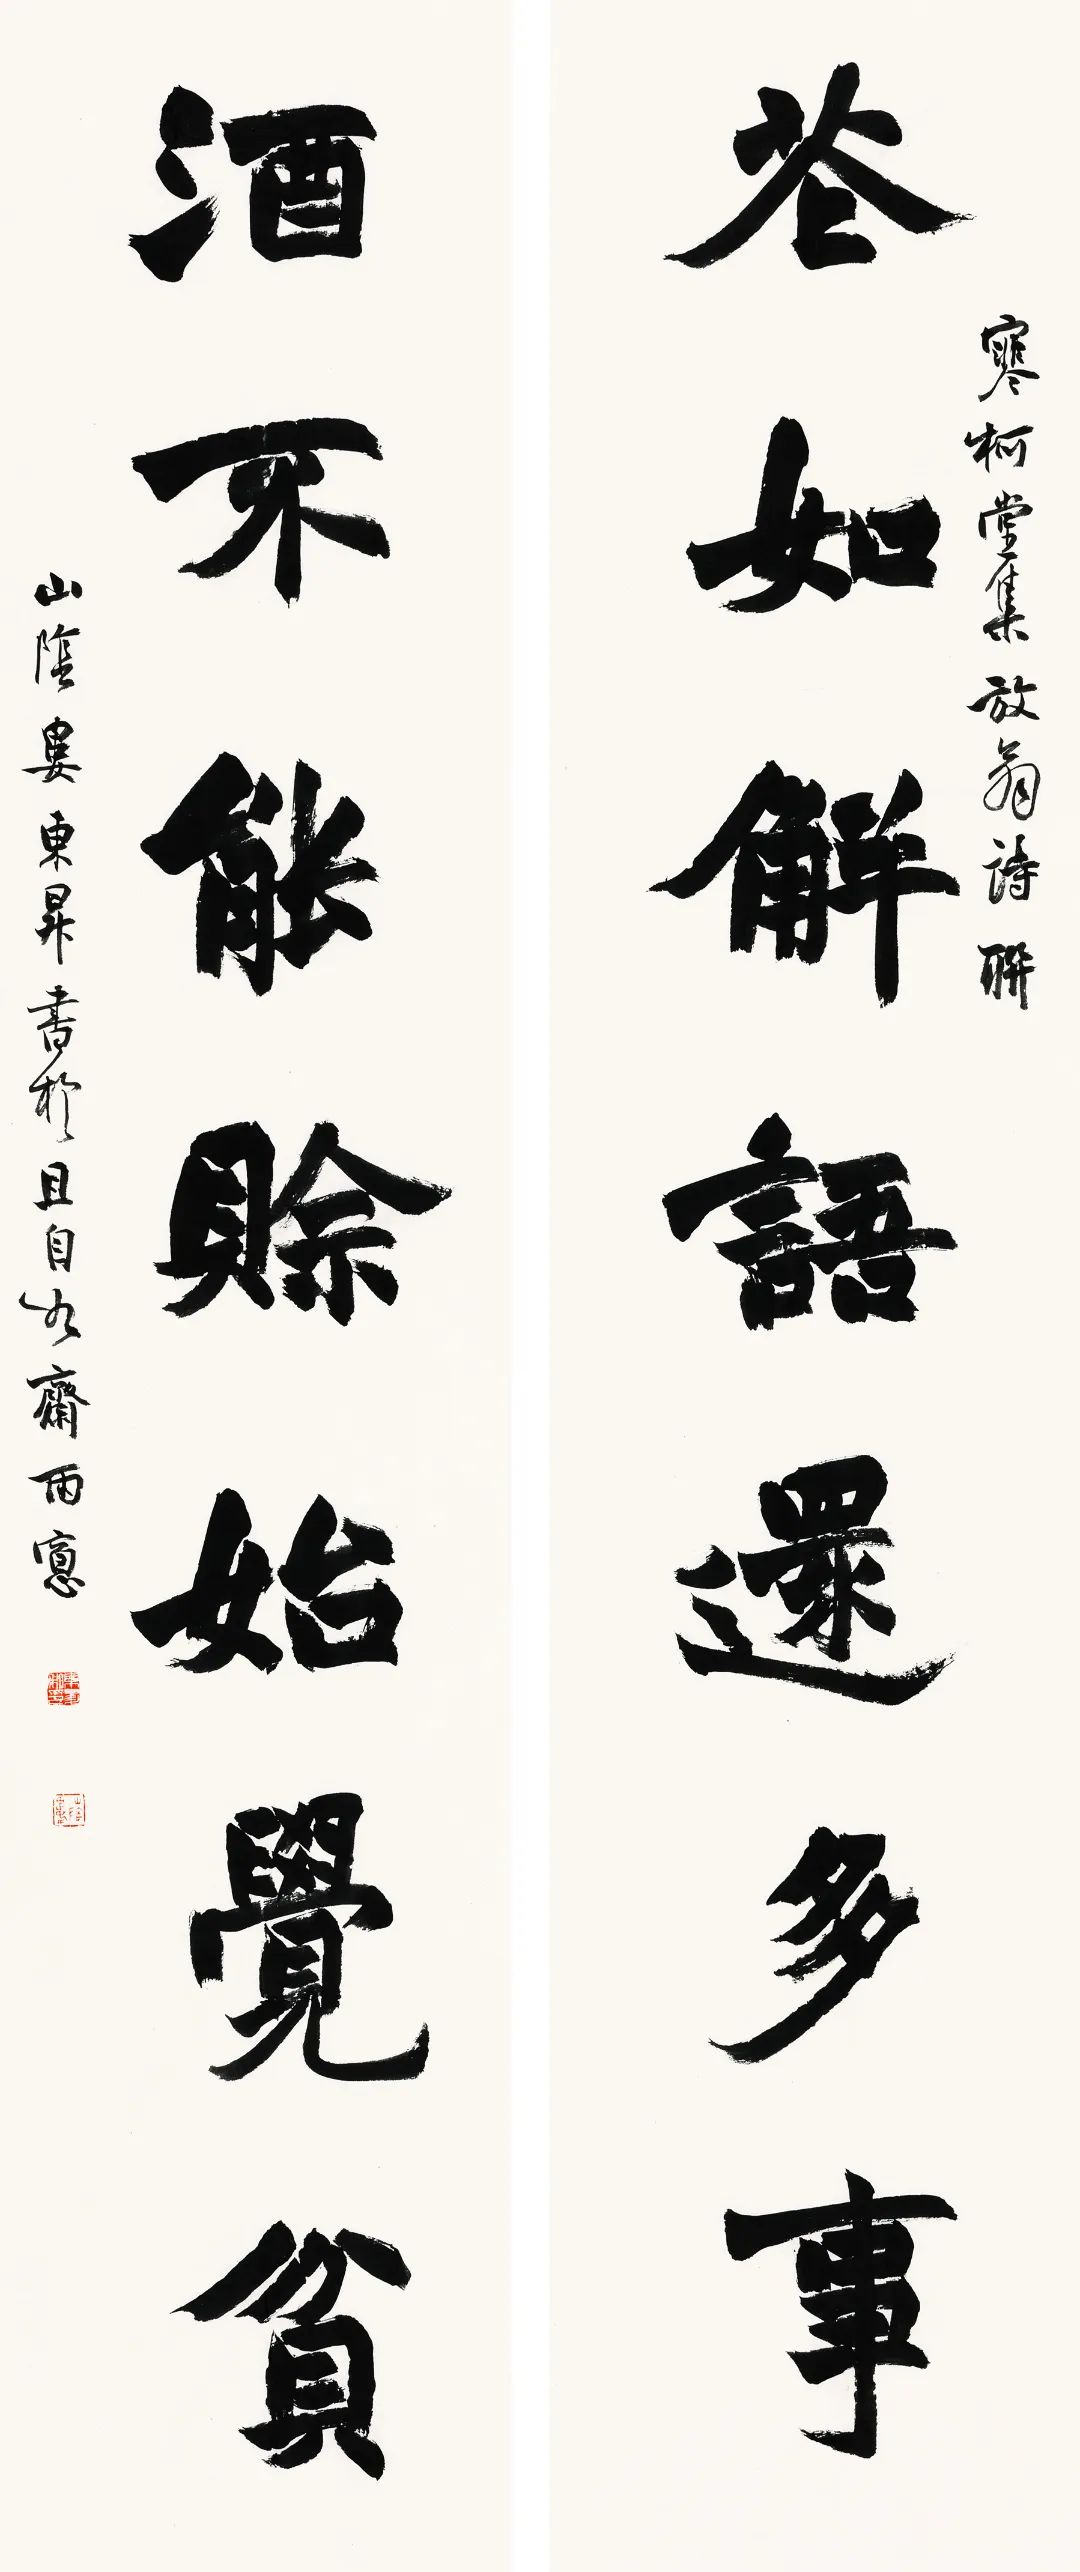 寒柯堂集放翁詩聯
花如解語還多事
酒不能賒始覺貧
山陰婁東昇書於且自如齋雨窓